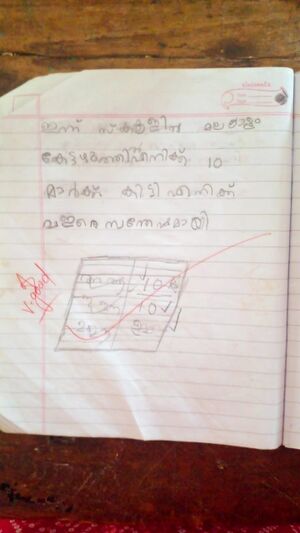 classmate
ഇന്ന് സ്കൂളിൽ മലയാളം
കേട്ടഴുത്തിഎനിക്ക് 10
മാർക്ക് കിട്ടി എനിക്ക്
വളരെ സന്തോഷമായി
10
10
V.good